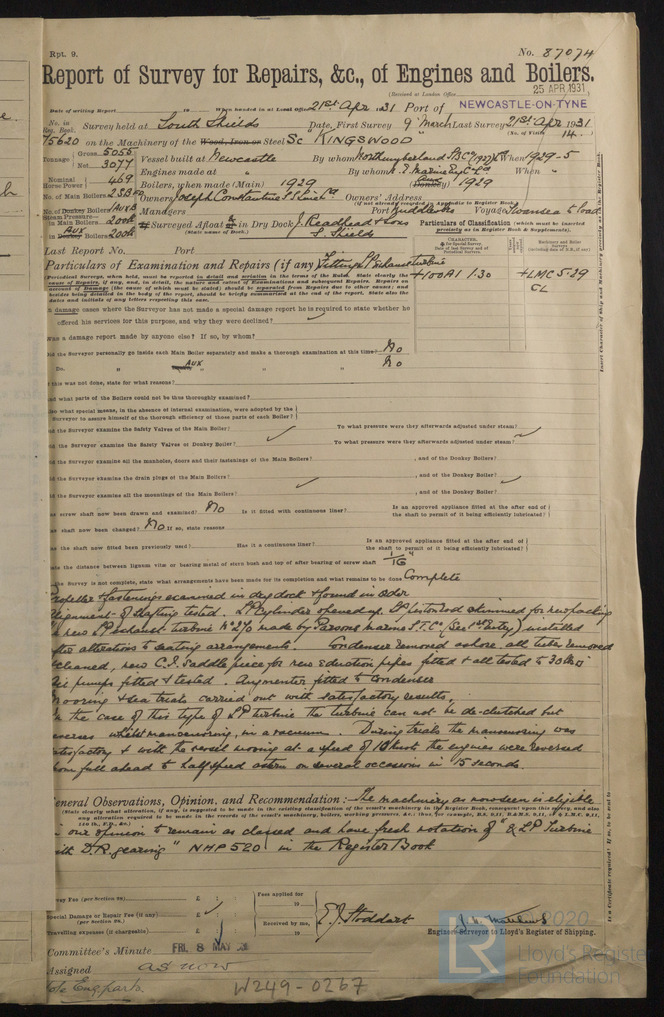 Rpt. 9.
No. 87074
Report of Survey for Repairs, &c., of Engines and Boilers.
(Received at London Office
25 APR 1931
Date of writing Report 19 When handed in at Local Office 21st Apr 1931 Port of NEWCASTLE-ON-TYNE
No. in Reg. Book. Survey held at South Shields Date, First Survey 9th March Last Survey 21st Apr 1931
(No. of Visits 14.)
75620 on the Machinery of the Wood, Iron or Steel Sc "KINGSWOOD"
Tonnage Gross 5055 Net 3077 Vessel built at Newcastle By whom Northumberland S.B. Co (1927) Ltd When 1929-5
Nominal Horse Power 469 Engines made at " By whom N.E. Marine Eng Co Ld When "
No. of Main Boilers 2SB Boilers, when made (Main) 1929 (Donkey) Aux 1929
No. of Donkey Boilers 1 Aux B Owners Joseph Constantine S.S. Line Ld Owners' Address
(if not already recorded in Appendix to Register Book.)
Steam Pressure in Main Boilers 200 lb Managers Port Middlesbro Voyage Swansea to load
in Aux Boilers 200 lb Surveyed Afloat & in Dry Dock J. Readhead & Sons S. Shields
(State name of Dock.)
Particulars of Classification (which must be inserted precisely as in Register Book & Supplements).
Last Report No. Port
Particulars of Examination and Repairs (if any) Fitting LP Exhaust turbine
+100A1 1.30 +LMC 5.29
CL
Periodical Surveys, when held, must be reported in detail and seriatim in the terms of the Rules. State clearly the cause of Repairs, if any, and, in detail, the nature and extent of Examinations and subsequent Repairs. Repairs on account of Damage (the cause of which is to be stated) should be separated from Repairs due to other causes; and besides being detailed in the body of the report, should be briefly summarized at the end of the report. State also the dates and initials of any letters requesting this case.
In damage cases where the Surveyor has not made a special damage report he is required to state whether he
offered his services for this purpose, and why they were declined?
Was a damage report made by anyone else? If so, by whom?
Did the Surveyor personally go inside each Main Boiler separately and make a thorough examination at this time? No
Do. " Aux " " " No
If this was not done, state for what reasons?
And what parts of the Boilers could not be thus thoroughly examined?
Also what special means, in the absence of internal examination, were adopted by the
Surveyor to assure himself of the thorough efficiency of those parts of each Boiler?
Did the Surveyor examine the Safety Valves of the Main Boiler? To what pressure were they afterwards adjusted under steam?
Did the Surveyor examine the Safety Valves of Donkey Boiler? To what pressure were they afterwards adjusted under steam?
Did the Surveyor examine all the manholes, doors and their fastenings of the Main Boilers? , and of the Donkey Boilers?
Did the Surveyor examine the drain plugs of the Main Boilers? , and of the Donkey Boiler?
Did the Surveyor examine all the mountings of the Main Boilers? , and of the Donkey Boiler?
Has screw shaft now been drawn and examined? No Is it fitted with continuous liner? Is an approved appliance fitted at the after end of the shaft to permit of it being efficiently lubricated?
Has shaft now been changed? No If so, state reasons
Has the shaft now fitted been previously used? Has it a continuous liner? Is an approved appliance fitted at the after end of the shaft to permit of it being efficiently lubricated?
State the distance between lignum vitæ or bearing metal of stern bush and top of after bearing of screw shaft 1/16"
If the Survey is not complete, state what arrangements have been made for its completion and what remains to be done Complete
Propeller & fastenings examined in dry dock & found in order
Alignment of shafting tested. LP cylinder opened up. LP piston rod skimmed for new packing
A new LP exhaust turbine No 270 made by Parsons Marine S.T. Co (See 1st Entry) installed
after alterations to seating arrangements. Condenser removed ashore all tubes removed
& cleaned, new C.I. saddle piece for new eduction pipes fitted & all tested to 30 lbs
Air pumps fitted & tested. Augmenter fitted to condenser
Mooring & sea trials carried out with satisfactory results,
In the case of this type of LP turbine the turbine can not be de-clutched but
reverses whilst manoeuvring, in a vacuum. During trials the manoeuvring was
satisfactory & with the vessel moving at a speed of 10 knots the engines were reversed
from full ahead to half speed astern on several occasions in 15 seconds.
General Observations, Opinion, and Recommendation:— The machinery as now seen is eligible
(State clearly what alteration, if any, is suggested to be made in the existing classification of the vessel's machinery in the Register Book, consequent upon this survey, and also any alteration required to be made in the records of the vessel's machinery, boilers, working pressures, &c.; thus, for example, B.S. 9,11, B.&M.S. 9,11, & L.M.C. 9,11, 140 lb., F.D., &c.)
in our opinion to remain as classed and have fresh notation of "& LP Turbine
with D.R. gearing" NHP 520 in the Register Book
Survey Fee (per Section 29) £ : : Fees applied for
Special Damage or Repair Fee (if any) (per Section 29.) £ : : 19
Travelling expenses (if chargeable) £ : : Received by me, 19
E.J. Stoddart
J.H. Matthews
Engineer Surveyor to Lloyd's Register of Shipping.
Committee's Minute FRI. 8 MAY 1931
Assigned as now
W249-0267
© 2020
LR
Lloyd's Register
Foundation